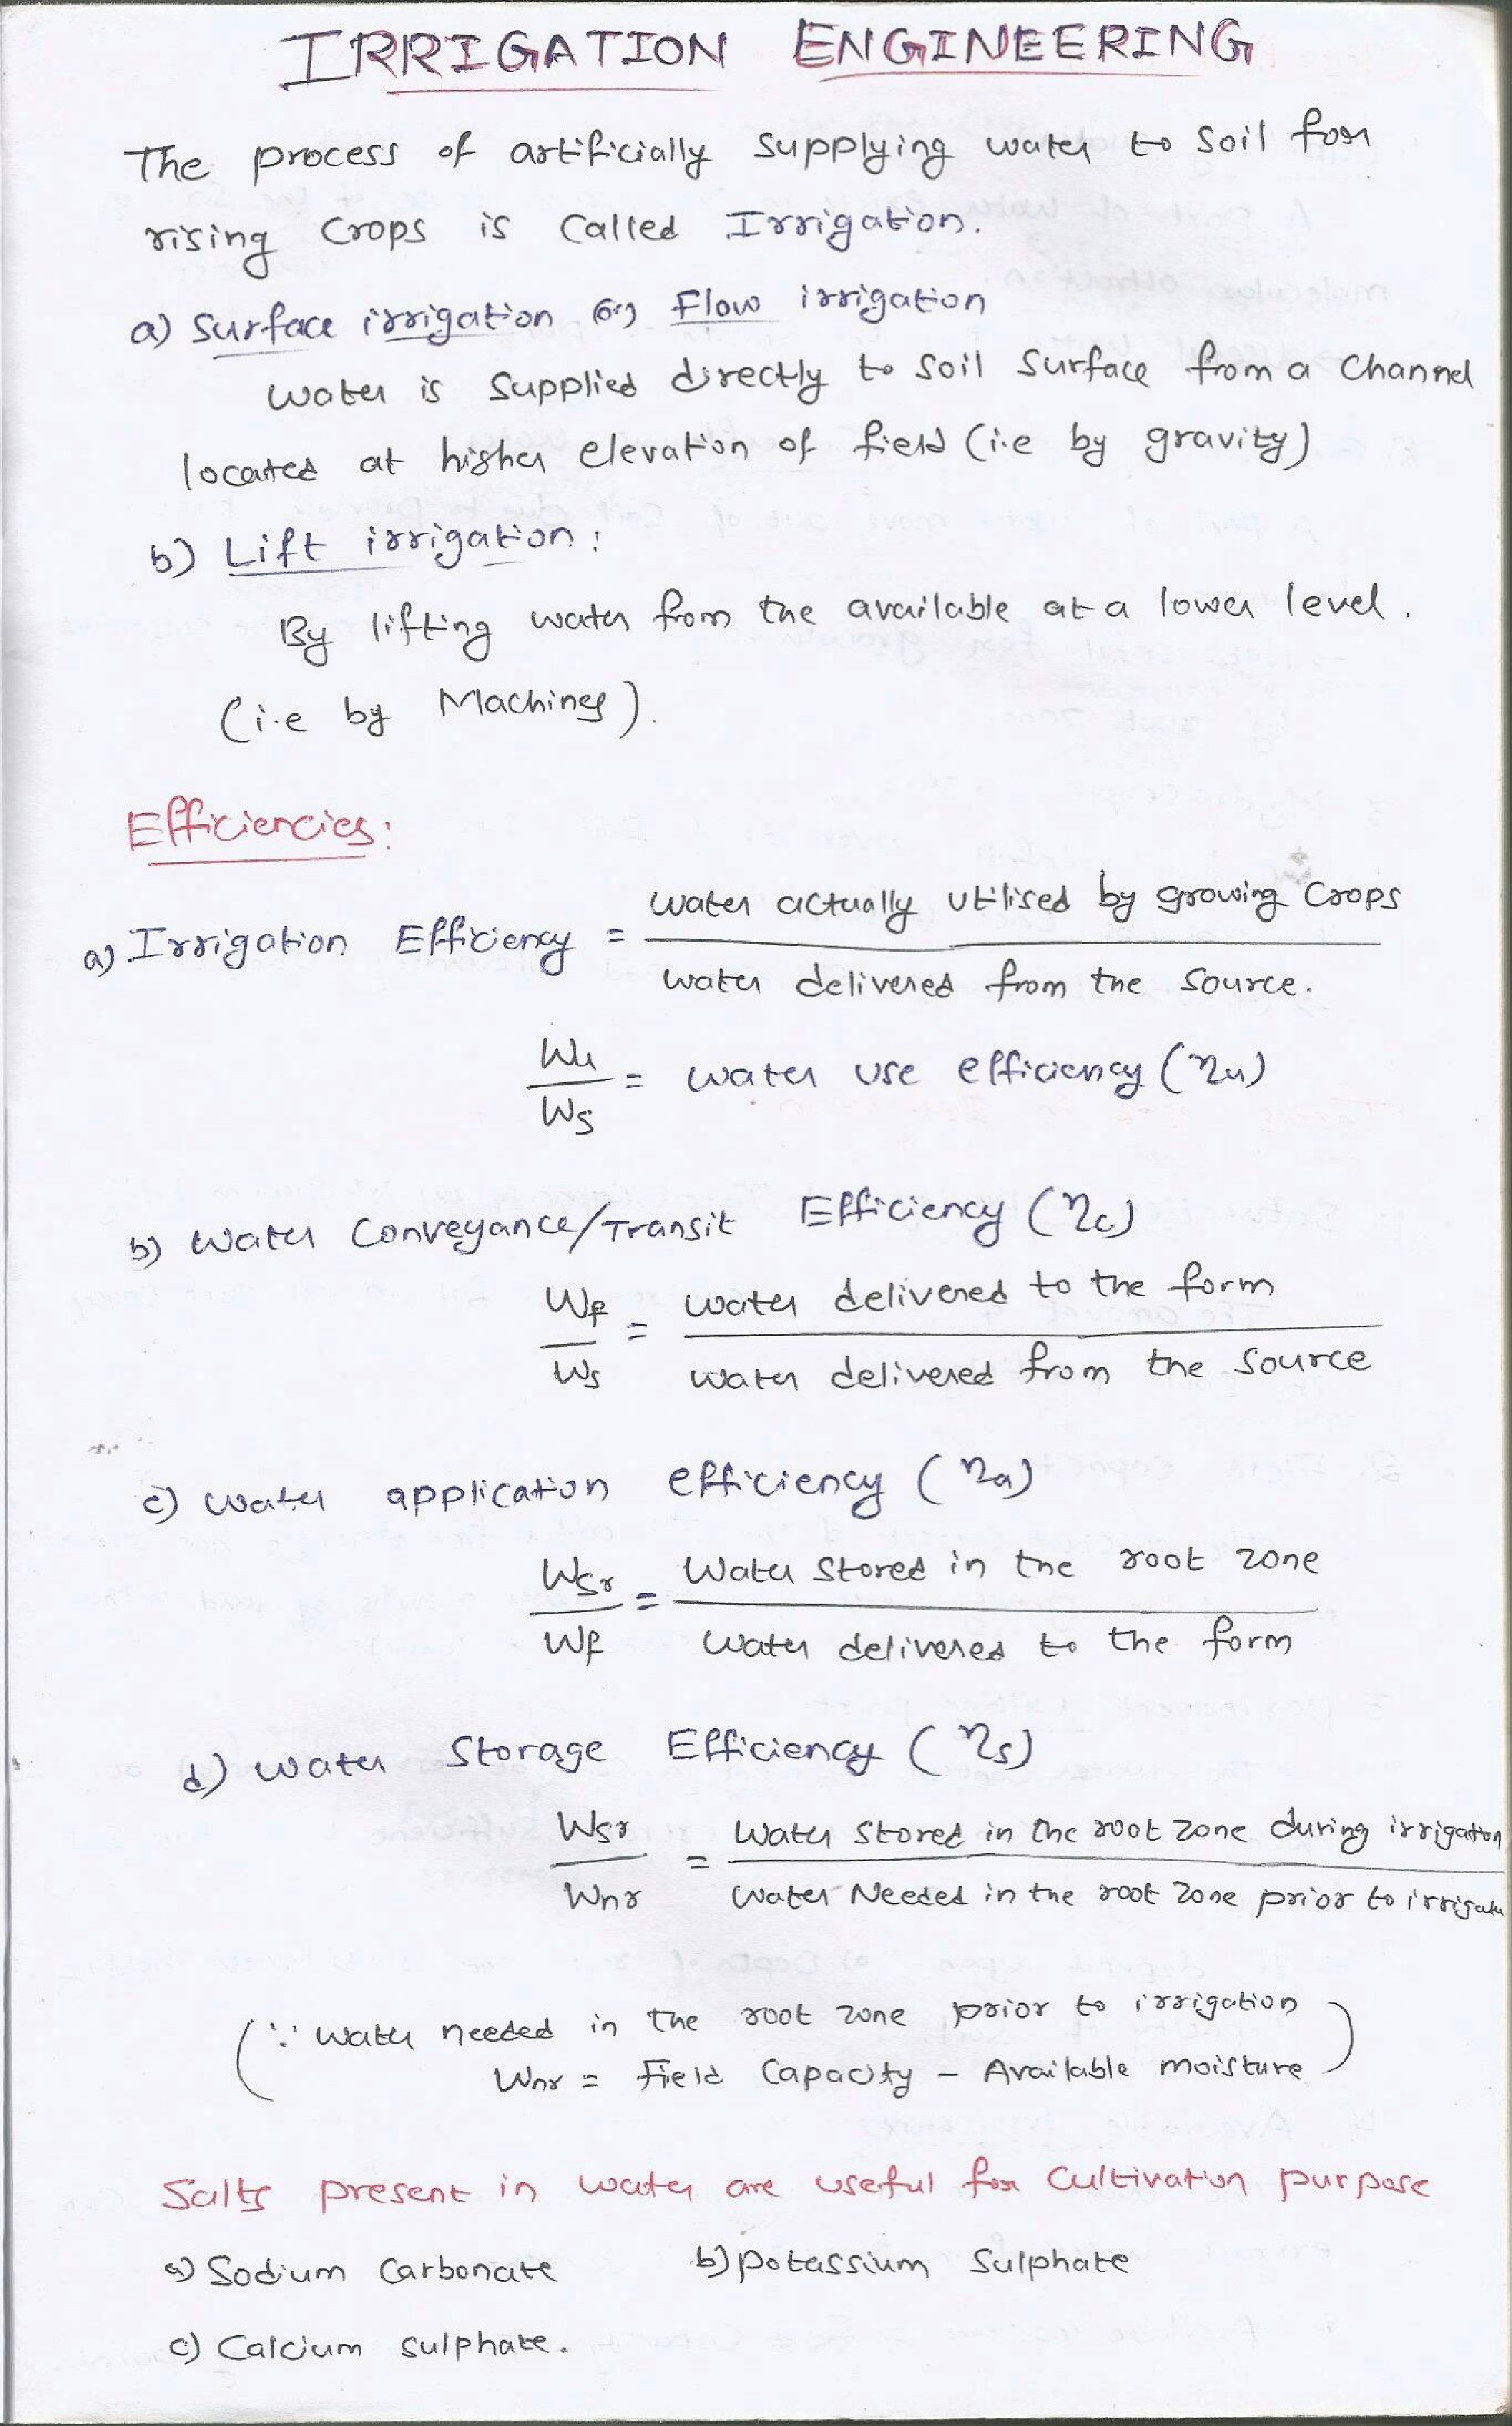 IRRIGATION ENGINEERING
The process of artificially supplying water to soil for
rising crops is called Irrigation.
a) Surface irrigation (or) Flow irrigation
water is supplied directly to soil surface from a channel
located at higher elevation of field (i.e by gravity)
b) Lift irrigation :
By lifting water from the available at a lower level.
(i.e by Machines).
Efficiencies:
a) Irrigation Efficiency = water actually utilised by growing crops / water delivered from the source.
Wu / Ws = water use efficiency (ηu)
b) water conveyance/Transit Efficiency (ηc)
Wf / Ws = water delivered to the form / water delivered from the source
c) water application efficiency (ηa)
Wsr / Wf = Water stored in the root zone / water delivered to the form
d) water storage Efficiency (ηs)
Wsr / Wnr = Water stored in the root zone during irrigation / Water Needed in the root zone prior to irrigatn
(∵ water needed in the root zone prior to irrigation
Wnr = Field Capacity - Available moisture)
Salts present in water are useful for cultivation purpose
a) Sodium carbonate b) potassium sulphate
c) Calcium sulphate.